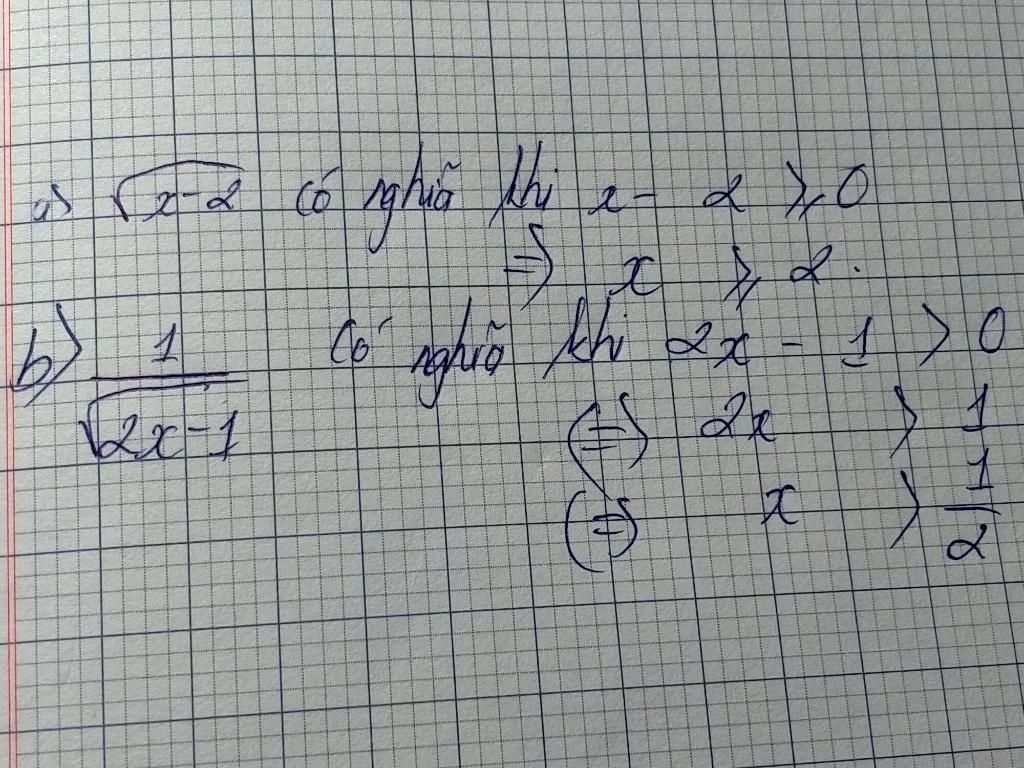 a) √(x-2) có nghĩã khi x - 2 ⩾ 0
=> x ⩾ 2.
b) 1/√(2x-1) có nghĩã khi 2x - 1 > 0
(=) 2x > 1
(=) x > 1/2